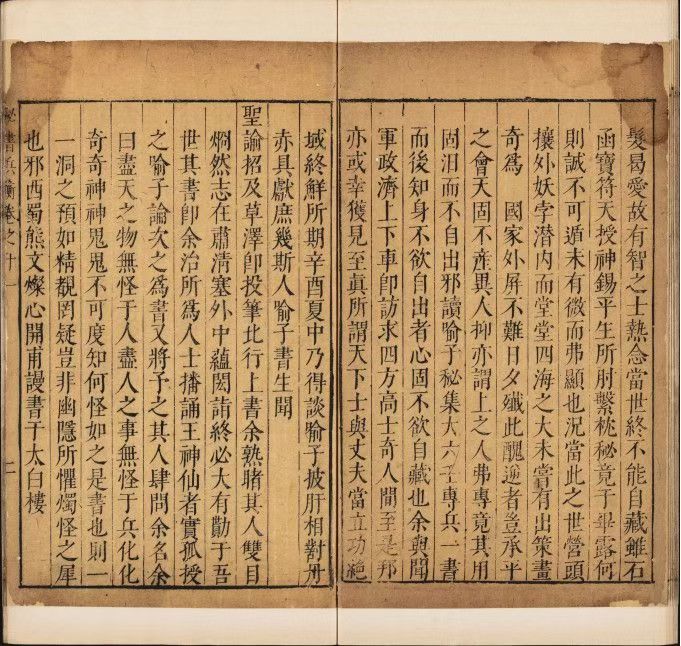 髮曷愛故有智之士熱念當世終不能自藏雖石
函寶符天授神錫平生所肘繫枕秘竟于畢露何
則誠不可遁未有微而弗顯也況當此之世營頭
攘外妖孛潛内而堂堂四海之大未嘗有出策畫
奇爲 國家外屏不難日夕殱此醜逆者豈承平
之會天固不產異人抑亦謂上之人弗專竟其用
固汩而不自出邪讀喻子秘集大六壬專兵一書
而後知身不欲自出者心固不欲自藏也余與聞
軍政濟上下車卽訪求四方高士奇人間至是邦
亦或幸獲見至眞所謂天下士與丈夫當立功絕
域終鮮所期辛酉夏中乃得談喻子披肝相對丹
赤具獻庶幾斯人喻子書生聞
聖諭招及草澤卽投筆北行上書余熟睹其人雙目
烱然志在肅清塞外中蘊閎請終必大有勳于吾
世其書卽余治所爲人士播誦王神仙者實孤授
之喻子論次之爲書又將予之其人肆問余名余
曰盡天之物無怪于人盡人之事無怪于兵化化
奇奇神神鬼鬼不可度知何怪如之是書也則一
一洞之預如精覩罔疑豈非幽隱所懼燭怪之犀
也邪西蜀熊文燦心開甫謾書于太白樓
秘書兵衡卷之十一
二